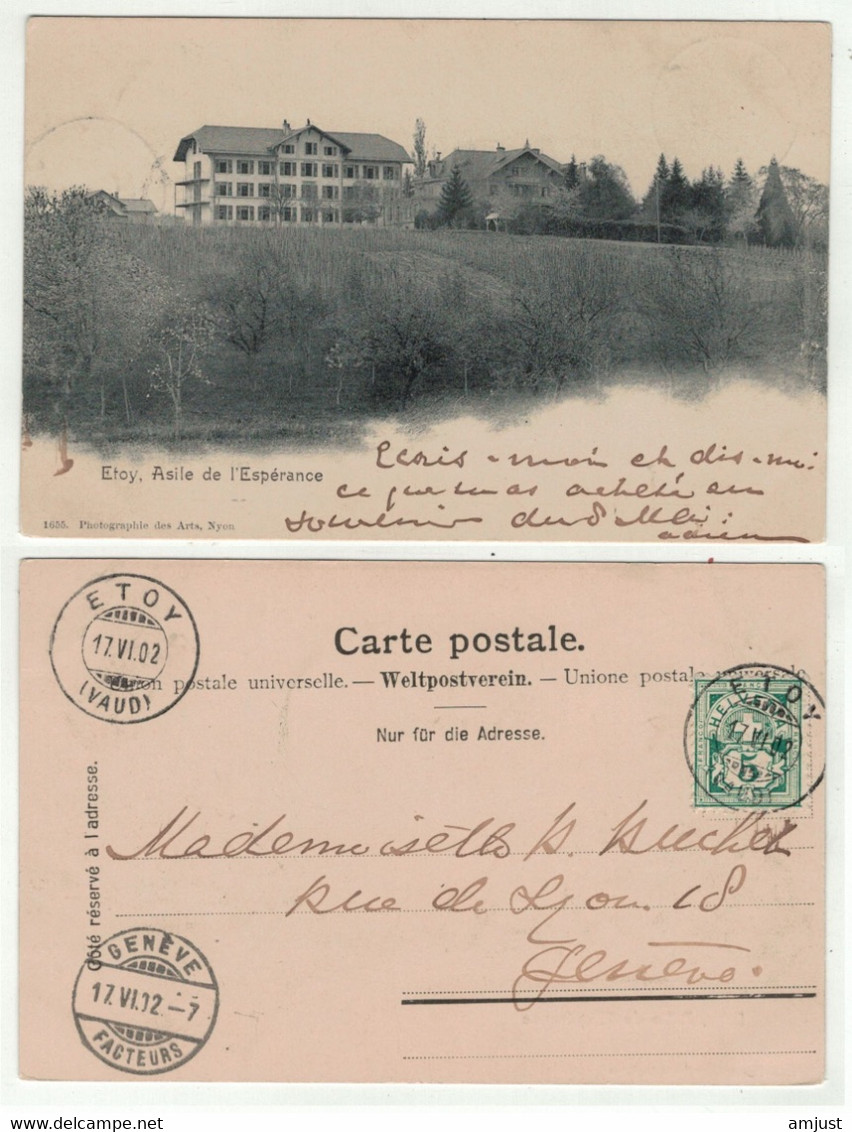 Etoy, Asile de l'Espérance
Ecris-moi et dis-moi
ce que tu as acheté en
souvenir du 8 Mai:
1655. Photographie des Arts, Nyon
ETOY
17.VI.02
(VAUD)
Carte postale.
Union postale universelle. — Weltpostverein. — Unione postale universale
Nur für die Adresse.
ETOY
17.VI.02
(VAUD)
HELVETIA
FRANCO
5
Côté réservé à l'adresse.
Mademoiselle
Rue de Lyon 18
Genève.
GENÈVE
17.VI.02.–7
FACTEURS
delcampe.net
amjust